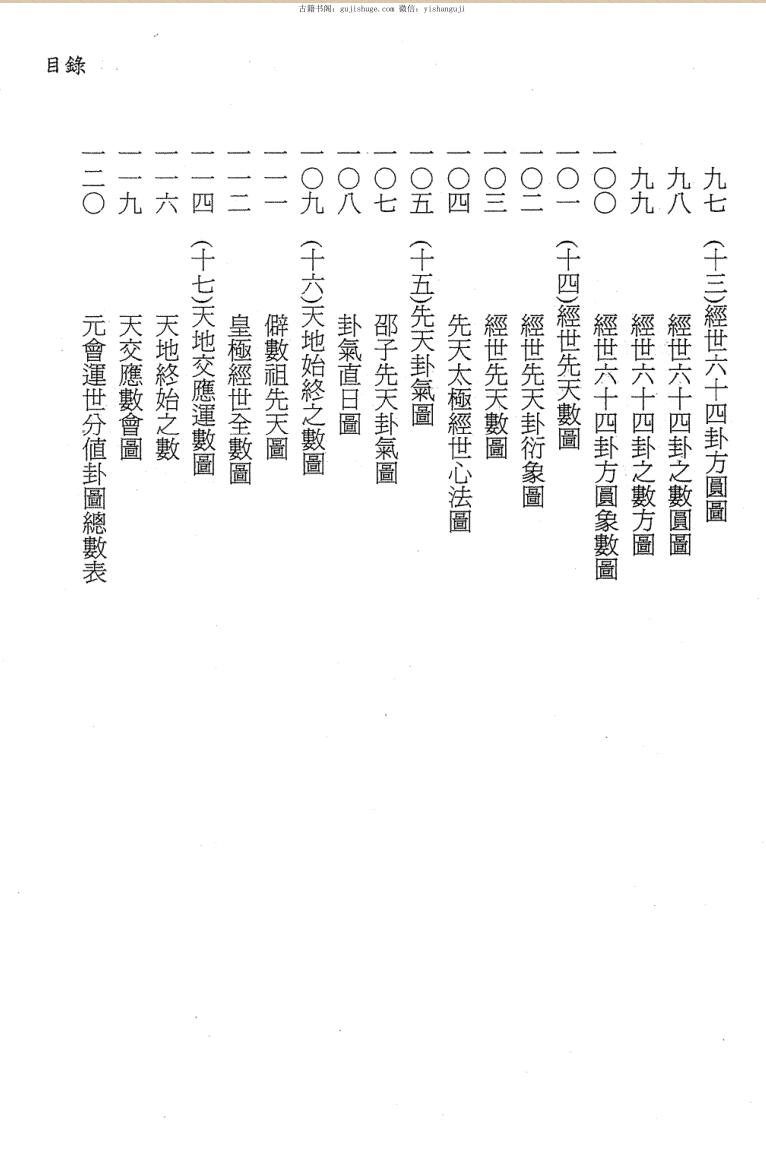 古籍书阁：gujishuge.com 微信：yishanguji
目錄
九七 (十三)經世六十四卦方圓圖
九八 經世六十四卦之數圓圖
九九 經世六十四卦之數方圖
一〇〇 經世六十四卦方圓象數圖
一〇一 (十四)經世先天數圖
一〇二 經世先天卦衍象圖
一〇三 經世先天數圖
一〇四 先天太極經世心法圖
一〇五 (十五)先天卦氣圖
一〇七 邵子先天卦氣圖
一〇八 卦氣直日圖
一〇九 (十六)天地始終之數圖
一一一 僻數祖先天圖
一一二 皇極經世全數圖
一一四 (十七)天地交應運數圖
一一六 天地終始之數
一一九 天交應數會圖
一二〇 元會運世分值卦圖總數表